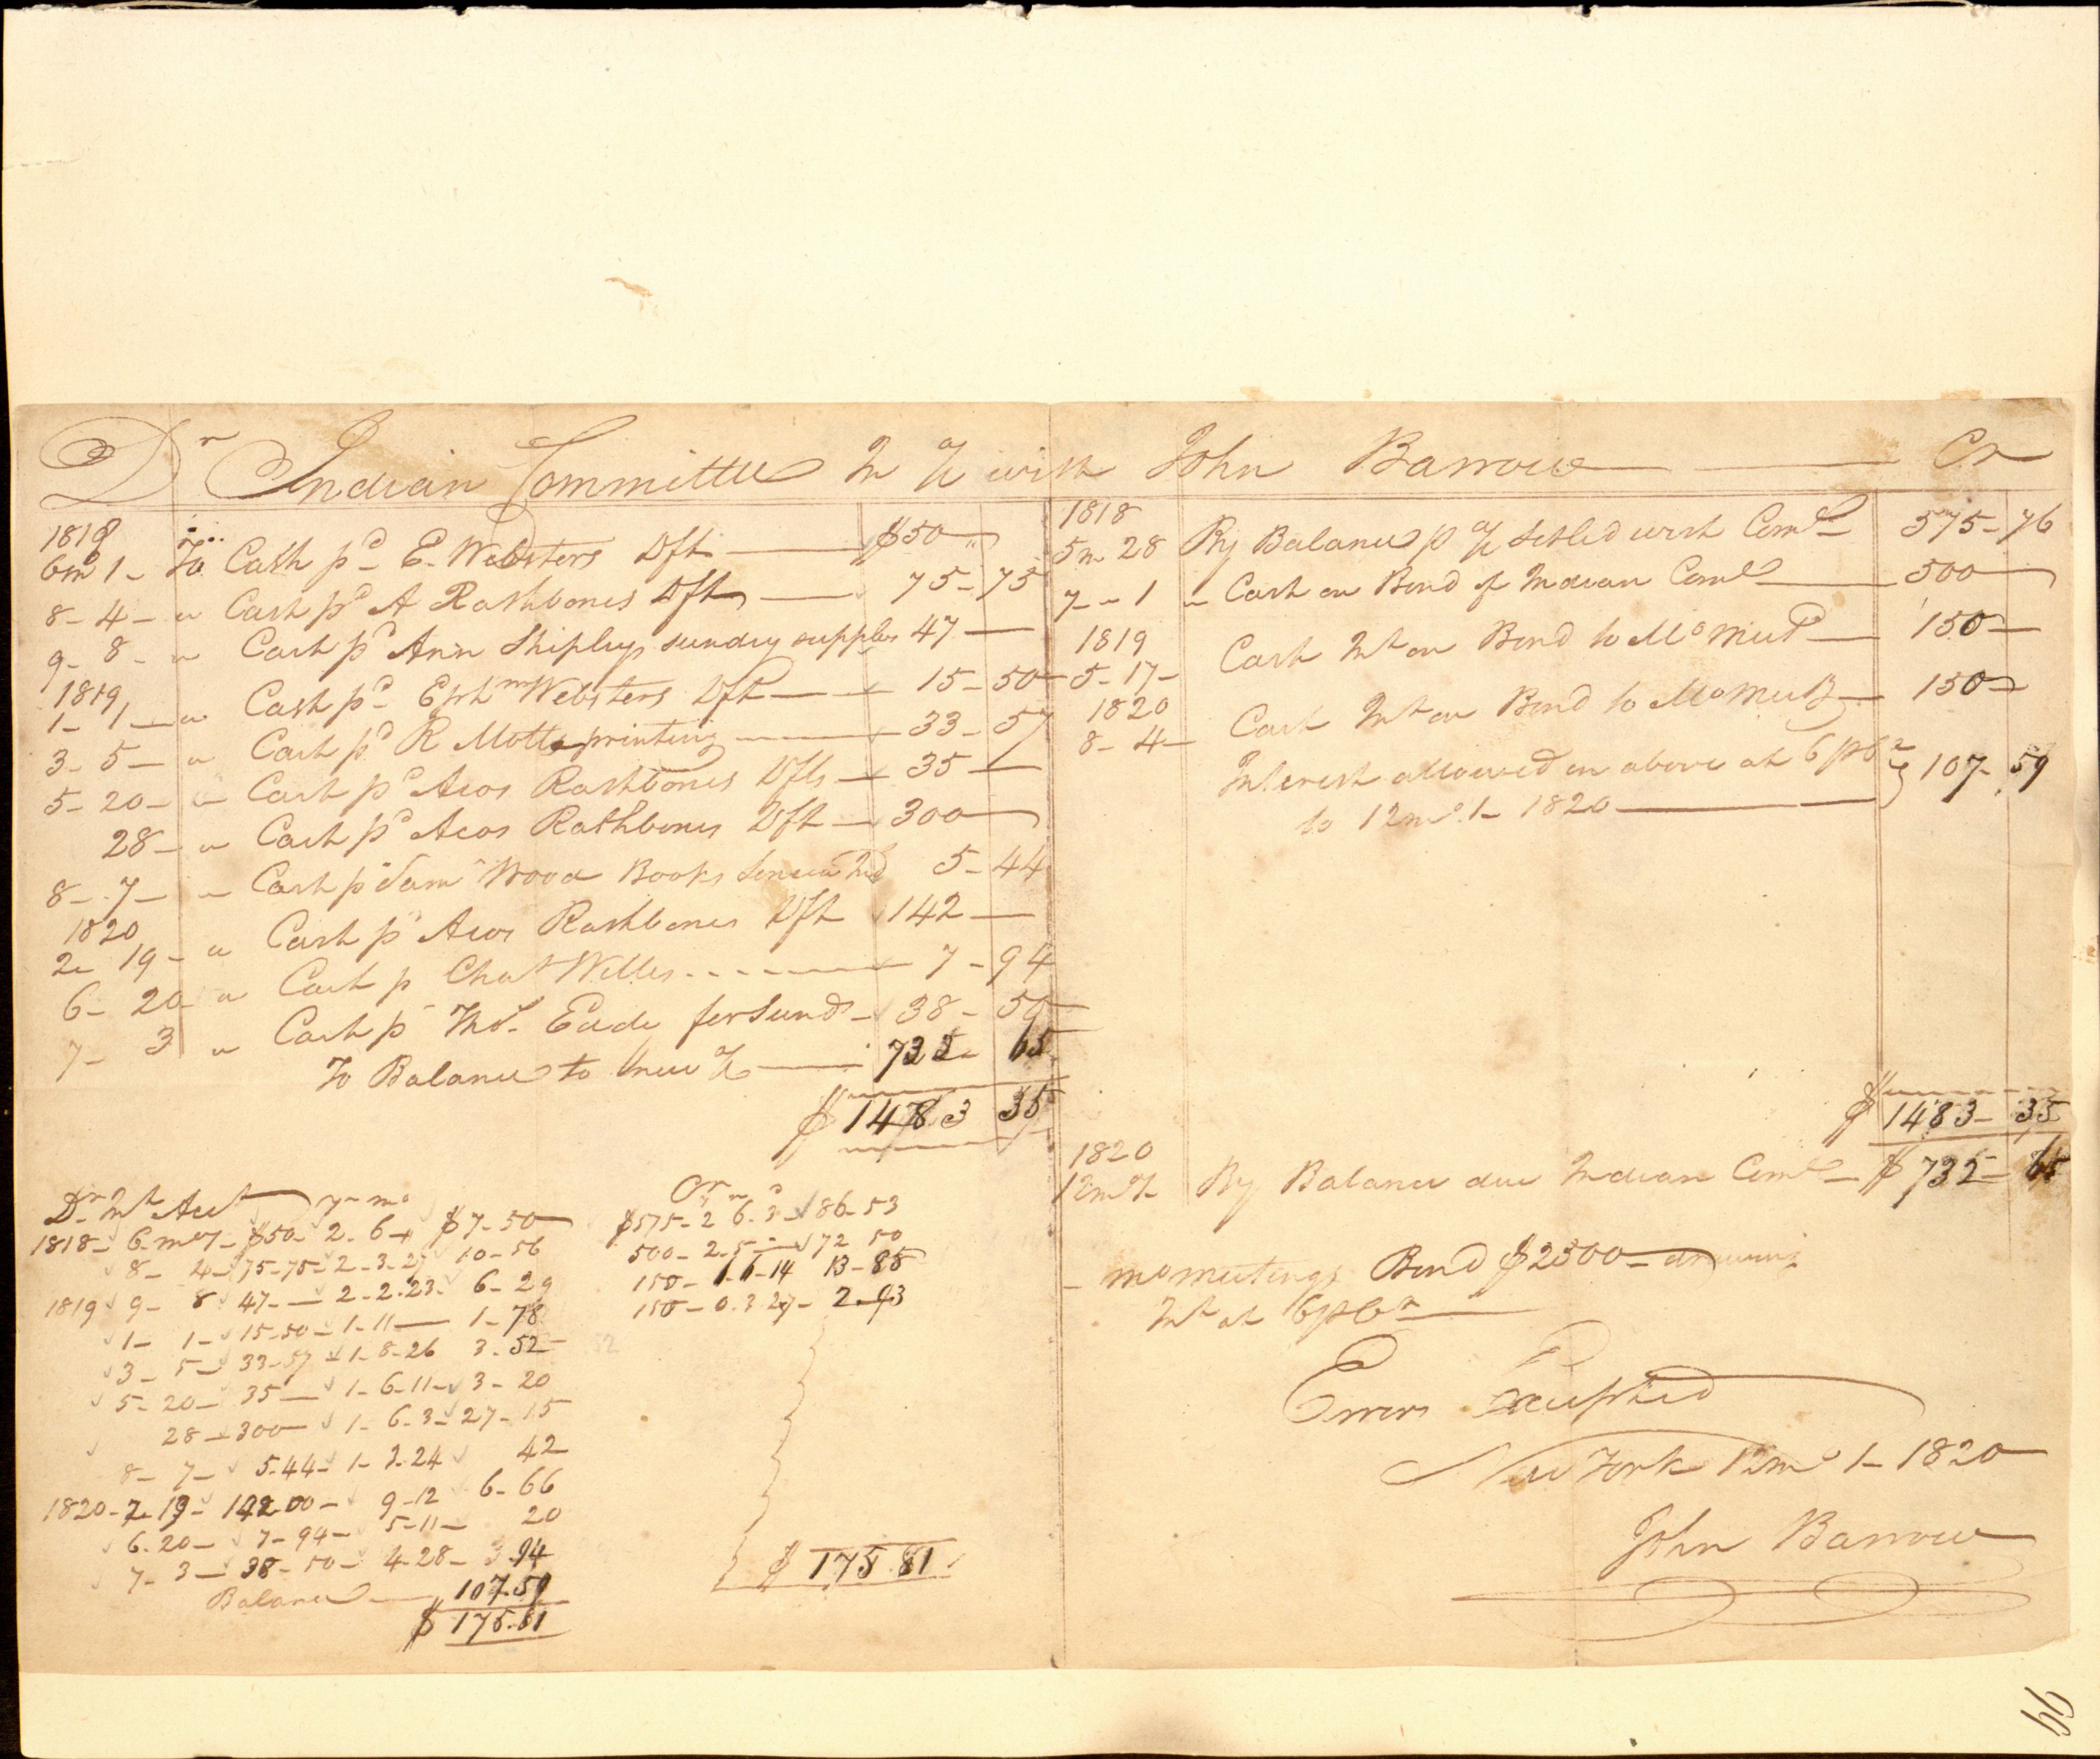 Dr Indian Committee In a/c with John Barrow Cr
1818
6mo 1 - To Cash pd E. Websters Dft $50 -
8 - 4 - " Cash pd A Rathbones Dft 75 - 75
9 - 8 - " Cash pd Ann Shipley sundry supplies 47 -
1819
1 - 1 - " Cash pd Ephm Websters Dft - 15 - 50
3 - 5 - " Cash pd R Motts printing - 33 - 57
5 - 20 - " Cash pd Acors Rathbones Dfts - 35 -
28 - " Cash pd Acors Rathbones Dft - 300 -
8 - 7 - " Cash pd Saml Wood Books 5 - 44
1820
2 - 19 - " Cash pd Acors Rathbones Dft 142 -
6 - 20 - " Cash pd Chas Willis - 7 - 94
7 - 3 " Cash pd Thos Eade for Sunds - 38 - 50
To Balance to new a/c - 732 - 65
$ 1483 35
1818
5m 28 By Balance p a/c settled with Comte - 575 - 76
7 - " 1 " Cash on Bond of Indian Comte - 500 -
1819
5 - 17 - Cash Int on Bond to Mo Meetg - 150 -
1820
8 - 4 - Cash Int on Bond to Mo Meetg - 150 -
Interest allowed on above at 6 p Ct } 107 - 59
to 12mo 1 - 1820
$ 1483 - 35
1820
12mo 1 By Balance due Indian Comte - $ 732 - 65
mo meetings Bond $2500 - drawing
Int at 6 p Ct
Errors Excepted
New York 12mo 1 - 1820
John Barrow
Dr Int Acct y - mo
1818 - 6 - mo 1 - $50 - 2 - 6 - $7 - 50
8 - 4 - 75 - 75 - 2 - 3 - 27 10 - 56
9 - 8 47 - 2 - 2 - 23 - 6 - 29
1819
1 - 1 - 15 - 50 - 1 - 11 - 1 - 78
3 - 5 - 33 - 57 - 1 - 8 - 26 3 - 52
5 - 20 - 35 - 1 - 6 - 11 - 3 - 20
28 - 300 - 1 - 6 - 3 - 27 - 15
8 - 7 - 5 - 44 - 1 - 3 - 24 42
1820 - 2 - 19 - 142 - 00 - 9 - 12 6 - 66
6 - 20 - 7 - 94 - 5 - 11 - 20
7 - 3 - 38 - 50 - 4 - 28 - .94
Balance - 107.59
$ 175.81
Cr
y m d
$575 - 2 6 - 3 - 86 - 53
500 - 2 - 5 - 72 50
150 - 1 - 6 - 14 13 - 85
150 - 0 - 3 - 27 - 2 - 93
$ 175 81
99